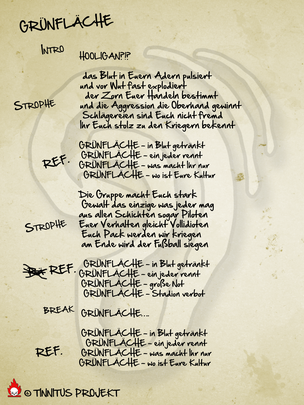 GRÜNFLÄCHE
INTRO
HOOLIGAN?!?
das Blut in Euern Adern pulsiert
und vor Wut fast explodiert
der Zorn Euer Handeln bestimmt
STROPHE
und die Aggression die Oberhand gewinnt
Schlägereien sind Euch nicht fremd
Ihr Euch stolz zu den Kriegern bekennt
GRÜNFLÄCHE - in Blut getränkt
REF.
GRÜNFLÄCHE - ein jeder rennt
GRÜNFLÄCHE - was macht Ihr nur
GRÜNFLÄCHE - wo ist Eure Kultur
Die Gruppe macht Euch stark
Gewalt das einzige was jeder mag
aus allen Schichten sogar Piloten
STROPHE
Euer Verhalten gleicht Vollidioten
Euch Pack werden wir kriegen
am Ende wird der Fußball siegen
REF.
GRÜNFLÄCHE - in Blut getränkt
GRÜNFLÄCHE - ein jeder rennt
GRÜNFLÄCHE - große Not
GRÜNFLÄCHE - Stadion verbot
BREAK
GRÜNFLÄCHE...
GRÜNFLÄCHE - in Blut getränkt
GRÜNFLÄCHE - ein jeder rennt
REF.
GRÜNFLÄCHE - was macht Ihr nur
GRÜNFLÄCHE - wo ist Eure Kultur
© TINNITUS PROJEKT